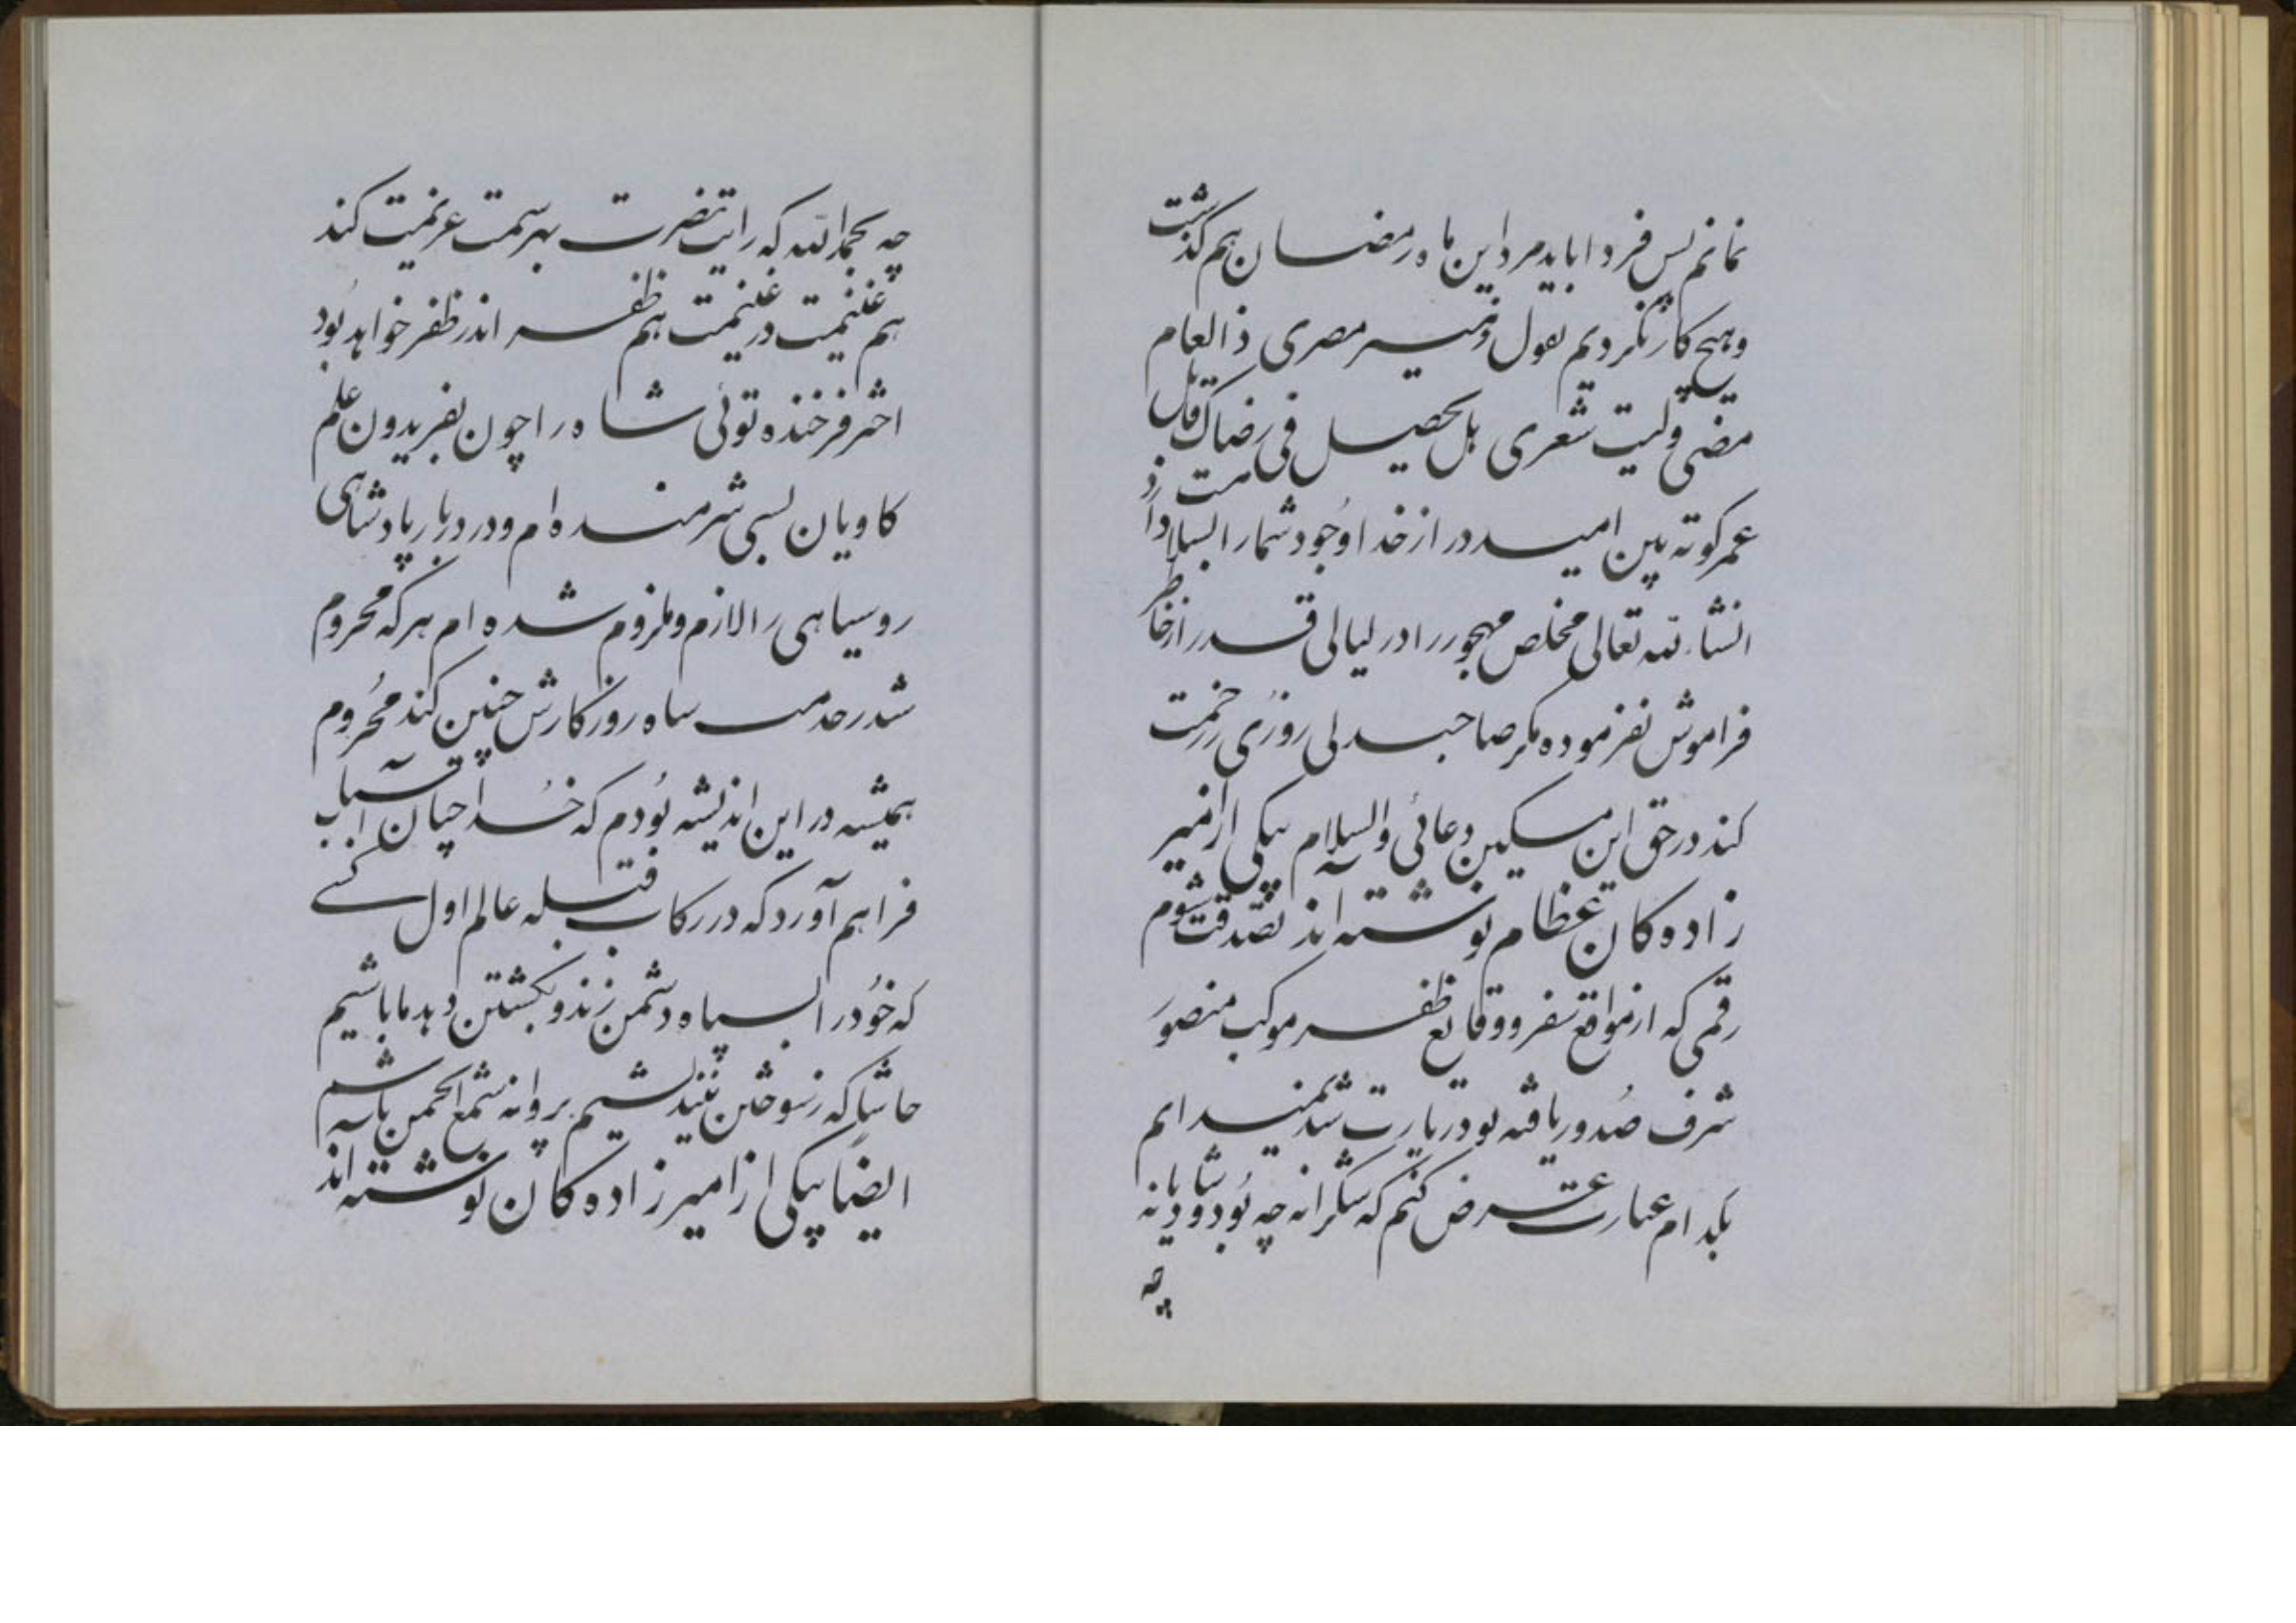 نمانم پس فردا باید مرد این ماه رمضان هم گذشت
وهیچ کار نکردیم بقول وقمیر مصری ذا العام
مضی ولیت شعری بل یحصیل فی رضاک قابل
عمر کوته بین امید دراز خدا وجود شما را بسلامت دارد
انشاءالله تعالی مخلص مهجور را در لیالی قدر از خاطر
فراموش نفرموده مکر صاحبدلی روزی زرحمت
کند در حق این مسکین دعائی والسلام بیکی از امیر
زاده کان عظام نوشته اند تصدقت شوم
رقمی که از مواقع سفر و وقایع ظفر موکب منصور
شرف صدور یافته بود زیارت شد نمیدانم
بکدام عبارت عرض کنم که شکرانه چه بود و شادیانه
چه
چه بحمدالله که رایت نصرت بهر سمت عزیمت کند
هم غنیمت در غنیمت هم ظفر اندر ظفر خواهد بود
اختر فرخنده توئی شاه را چون بفریدون علم
کاویان بسی شرمنده ام و در دربار پادشاهی
روسیاهی را لازم و ملزوم شده ام هرکه محروم
شد ز خدمت شاه روزکارش چنین کند محروم
همیشه در این اندیشه بودم که خدا چنان اسباب
فراهم آورد که در رکاب قبله عالم اول کسی
که خود را بسپاه دشمن زند و بکشتن دهد ما باشیم
حاشا که ز سوختن نیندیشیم پروانه شمع انجمن باشیم
ایضاً بیکی از امیرزاده کان نوشته اند